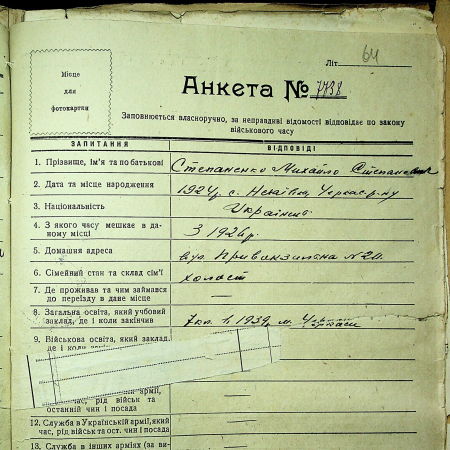 Літ. 64
Місце
для
фотокартки
Анкета № 7738
Заповнюється власноручно, за неправдиві відомості відповідає по закону
військового часу
ЗАПИТАННЯ ВІДПОВІДІ
1. Прізвище, ім'я та по батькові Степаненко Михайло Степанович
2. Дата та місце народження 1924р. с. Черкас. р-ну
3. Національність Українець
4. З якого часу мешкає в да-
ному місці З 1926р.
5. Домашня адреса вул. Привокзальна №20.
6. Сімейний стан та склад сім'ї холост
7. Де проживав та чим займався
до переїзду в дане місце —
8. Загальна освіта, який учбовий
заклад, де і коли закінчив 7 кл. в 1939р. м. Черкаси
9. Військова освіта, який заклад,
де і коли
армії,
час, рід військ та
останній чин і посада —
12. Служба в Українській армії, який
час, рід військ та ост. чин і посада —
13. Служба в інших арміях (за ви-